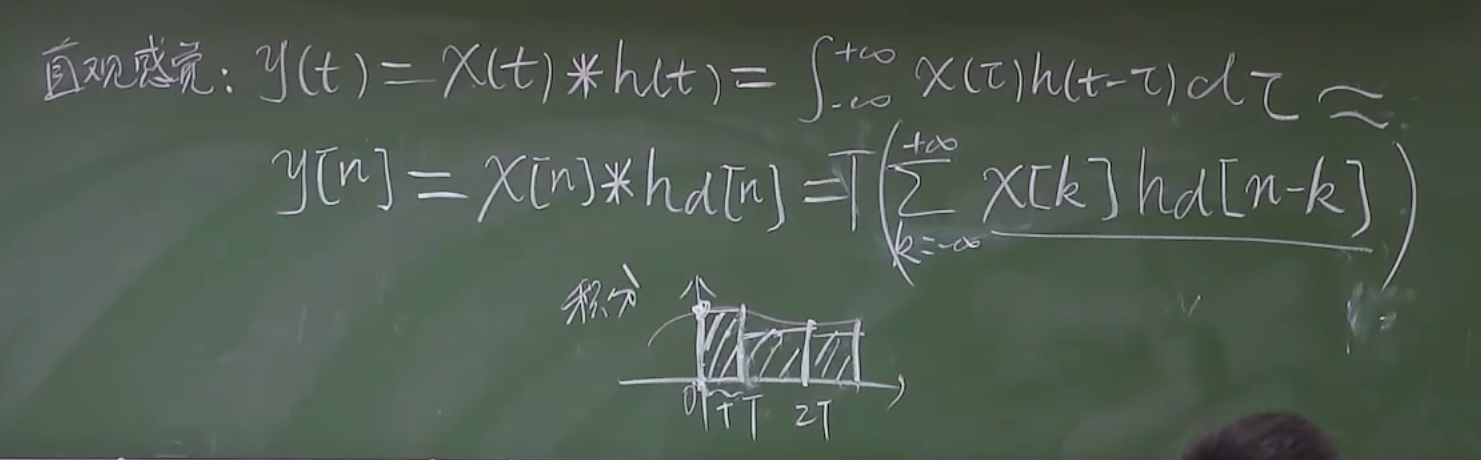 直观感觉: y(t) = x(t) * h(t) = ∫_{-∞}^{+∞} x(τ)h(t-τ)dτ ≈
y[n] = x[n] * hd[n] = T(∑_{k=-∞}^{+∞} x[k] hd[n-k])
积分
0 T T 2T